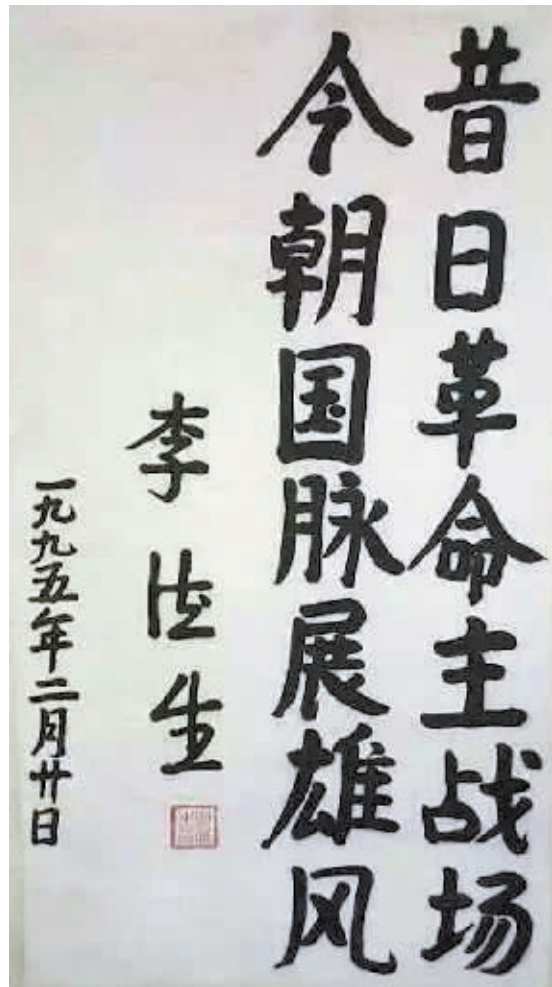 昔日革命主战场
今朝国脉展雄风
李德生
一九九五年二月廿日